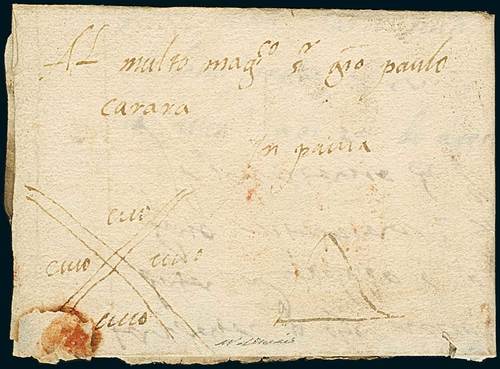 Al molto mag.co s.r gio paulo
carara
In pavia
cito
cito cito
cito